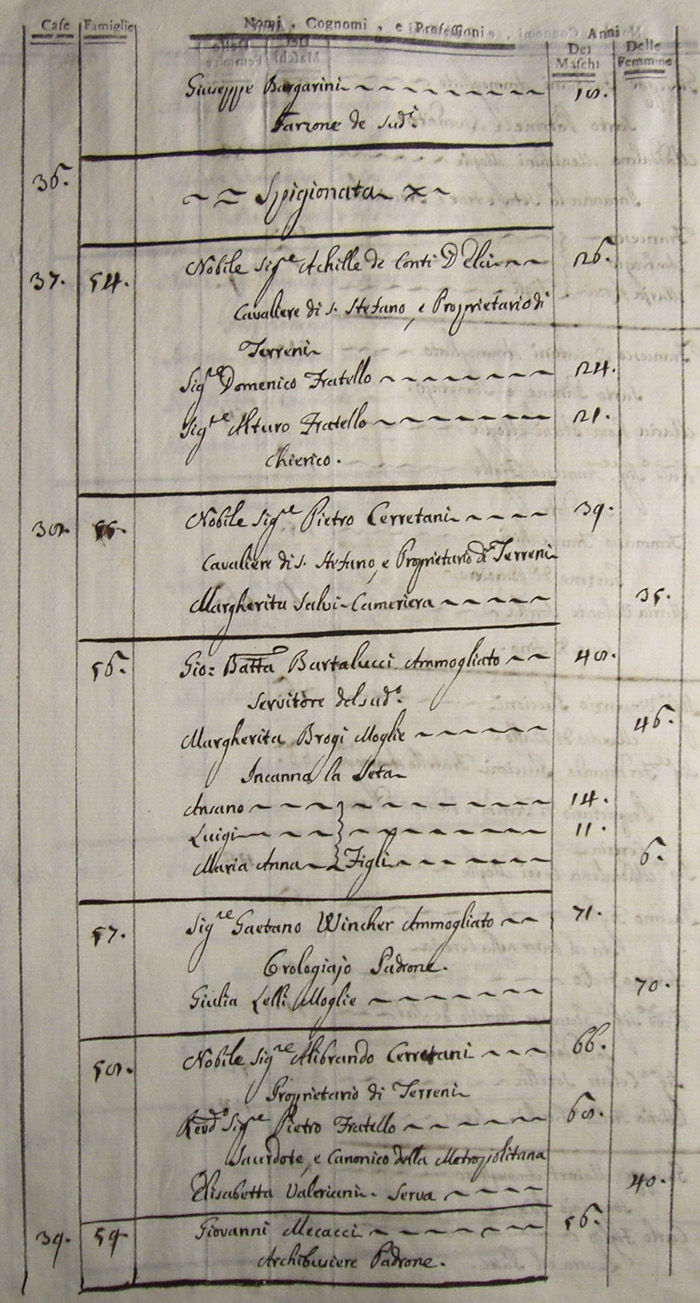 Case Famiglie Nomi, Cognomi, e Professioni Anni
Dei Maschi Delle Femmine
Giuseppe Bargarini 18.
Garzone de Sud.i
36. Spigionata
37. 54. Nobile Sig.e Achille de Conti D'Elci 26.
Cavaliere di S. Stefano, e Proprietario di
Terreni
Sig.re Domenico Fratello 24.
Sig.re Arturo Fratello 21.
Chierico.
38. 55. Nobile Sig.e Pietro Cerretani 39.
Cavaliere di S. Stefano, e Proprietario di Terreni
Margherita Salvi Cameriera 35.
56. Gio: Batta Bartalucci Ammogliato 48.
Servitore del sud.o
Margherita Brogi Moglie 46.
Incanna la Seta
Ansano 14.
Luigi 11.
Maria Anna Figli 6.
57. Sig.re Gaetano Wincher Ammogliato 71.
Orologiajo Padrone.
Giulia Lelli Moglie 70.
58. Nobile Sig.re Alibrando Cerretani 66.
Proprietario di Terreni
Revd.o Sig.re Pietro Fratello 68.
Sacerdote, e Canonico della Metropolitana
Elisabetta Valeriani Serva 40.
39. 59 Giovanni Mecacci 56.
Archibusiere Padrone.